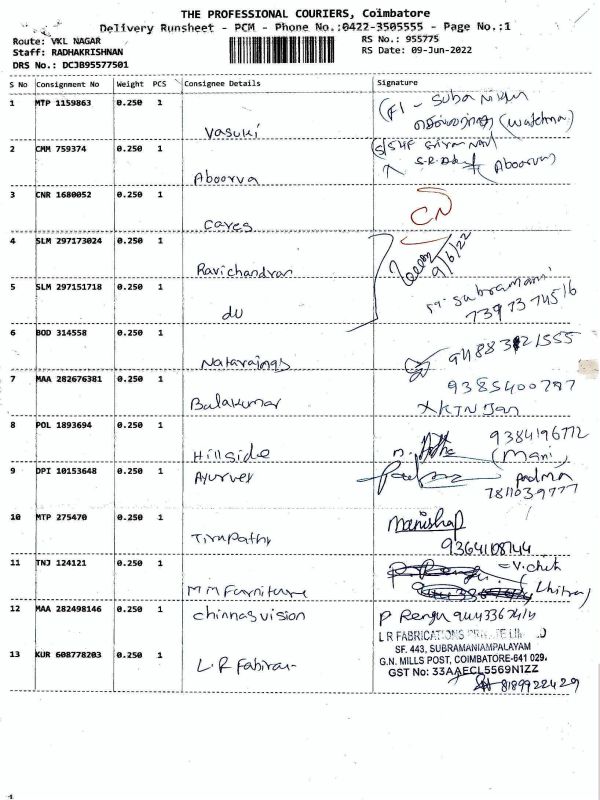 THE PROFESSIONAL COURIERS, Coimbatore
Delivery Runsheet - PCM - Phone No.:0422-3505555 - Page No.:1
Route: VKL NAGAR
Staff: RADHAKRISHNAN
DRS No.: DCJB95577501
RS No.: 955775
RS Date: 09-Jun-2022
S No Consignment No Weight PCS Consignee Details Signature
1 MTP 1159863 0.250 1 Vasuki (watchman)
2 CMM 759374 0.250 1 Aboorva (Aboorva)
3 CNR 1680052 0.250 1 Cares CN
4 SLM 297173024 0.250 1 Ravichandran 9/6/22
5 SLM 297151718 0.250 1 du Subramani
7397374516
6 BOD 314558 0.250 1
7 MAA 282676381 0.250 1 Balakumar 9385400797
8 POL 1893694 0.250 1 Hillside 9384196772
(Mani)
9 DPI 10153648 0.250 1 Ayurvey padma
7811039777
10 MTP 275470 0.250 1 Tirupathy Manisha
11 TNJ 124121 0.250 1 MM Furniture
12 MAA 282498146 0.250 1 Chinnasvision P Rengu
13 KUR 608778203 0.250 1 L R Fabiran
L R FABRICATIONS PRIVATE LIMITED
SF. 443, SUBRAMANIAMPALAYAM
G.N. MILLS POST, COIMBATORE-641 029.
GST No: 33AAECL5569N1ZZ
8189922429